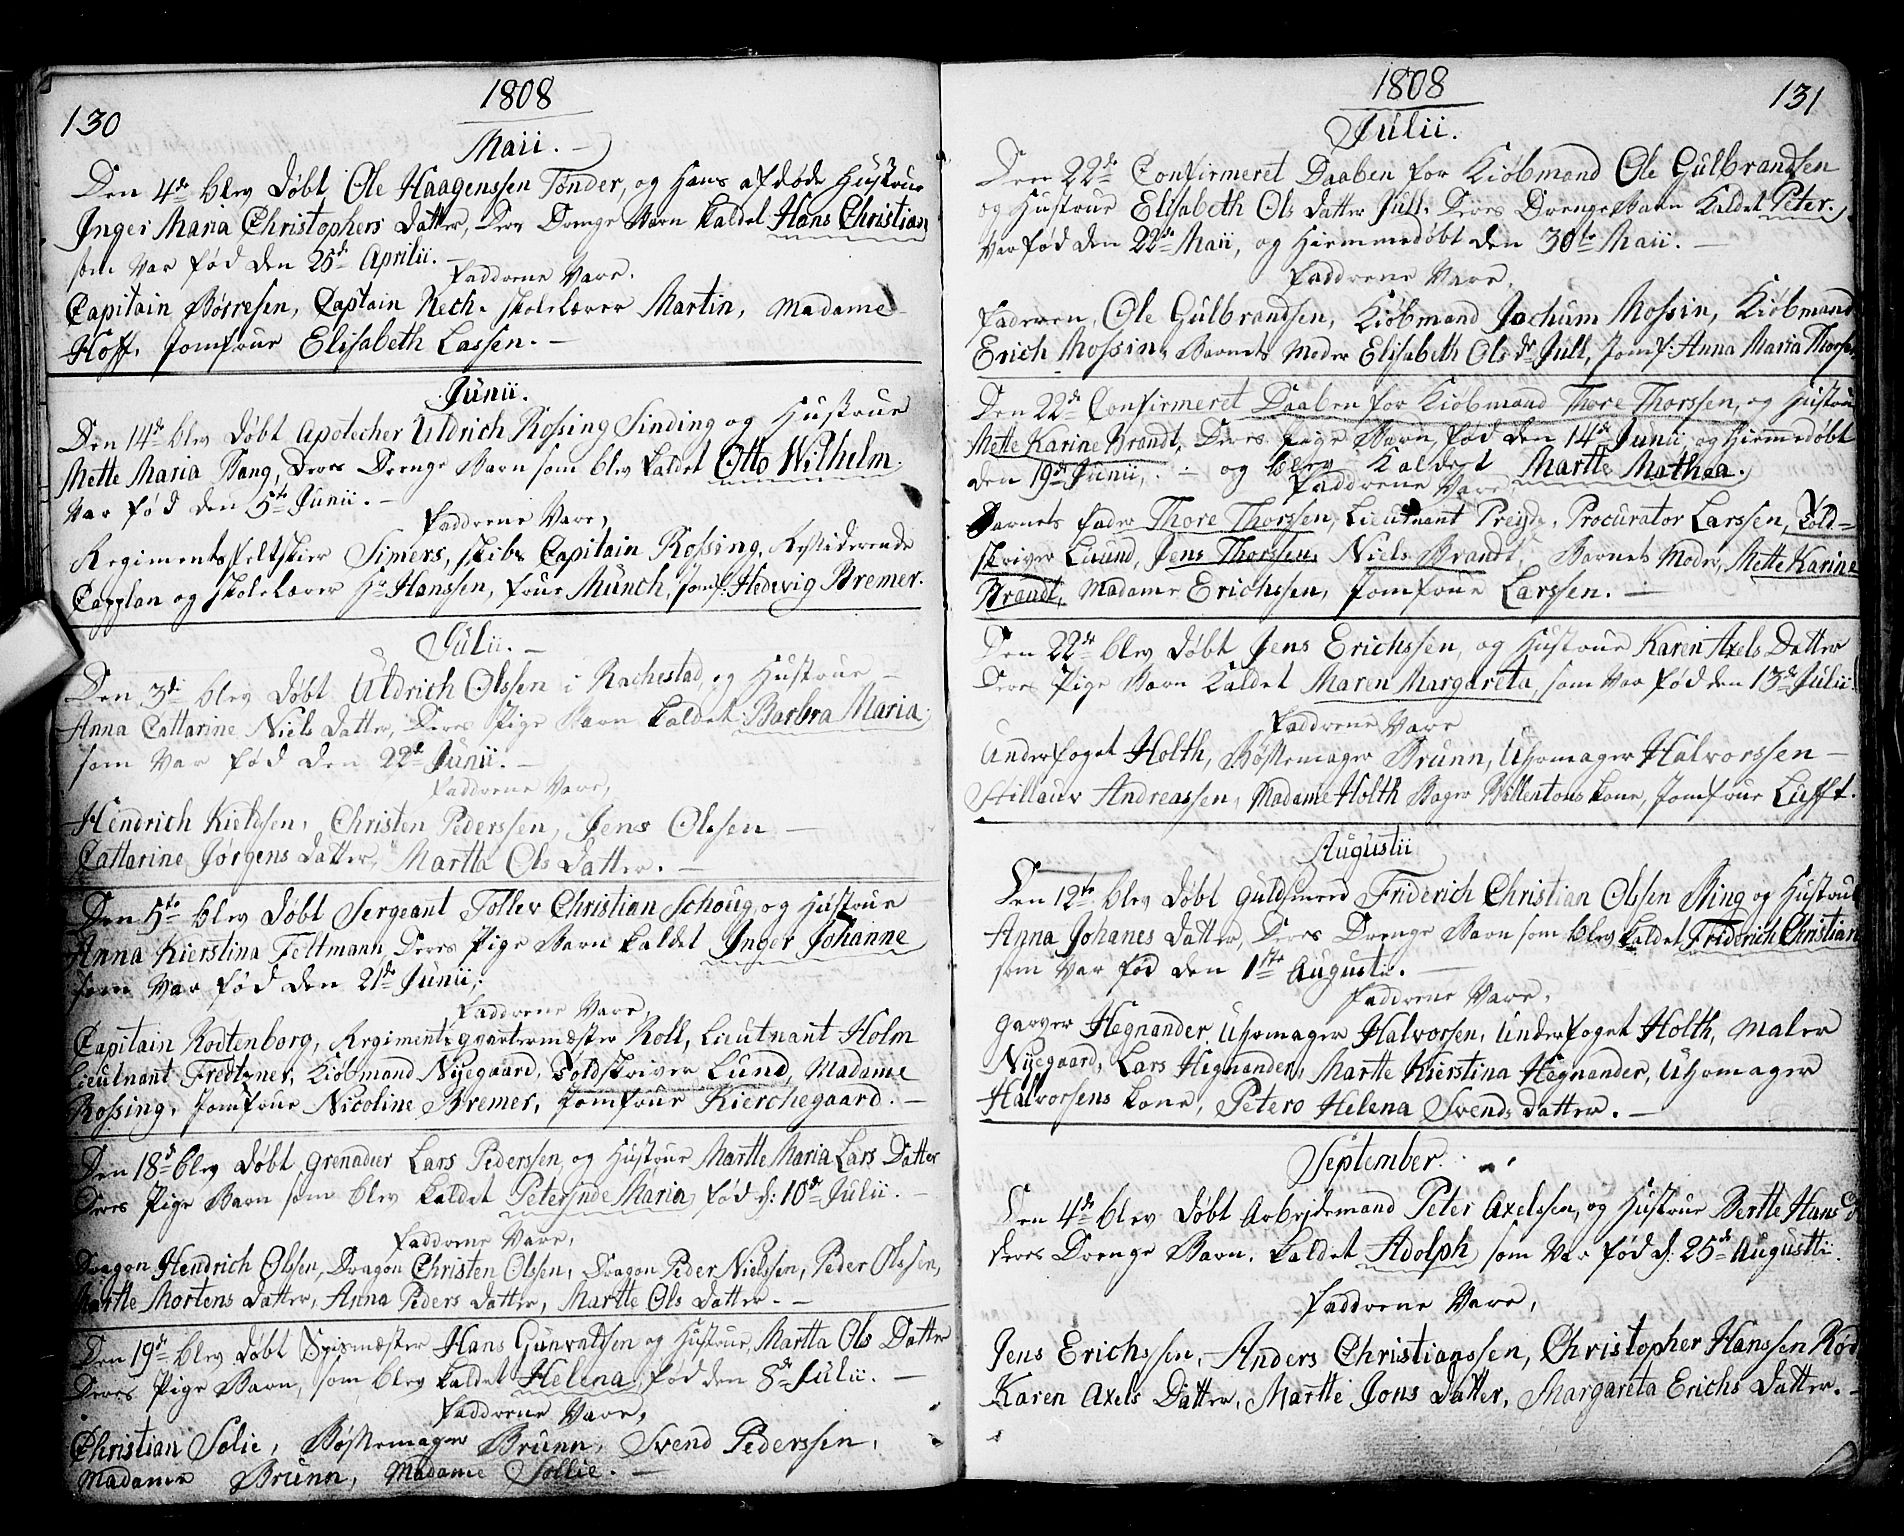 130
1808
Maii. —
Den 4de blev døbt Ole Haagenssen Tønder, og Hans afdøde Hustrue
Inger Maria Christophers Datter, Deres Drenge Barn kaldet Hans Christian,
som var fød den 25de Aprilii. —
Faddrene Vare.
Capitain Børresen, Captain Nech. Skolelærer Martin, Madame
Hoff. Jomfrue Elisabeth Lassen. —
Junii.
Den 14de blev døbt Apotecher Uldrich Rossing Sinding og Hustrue
Mette Maria Bang, Deres Drenge Barn som blev kaldet Otto Wilhelm.
Var fød den 5te Junii. —
Faddrene Vare,
Regiments feltskier Simers, skibs Capitain Rossing, Residerende
Capplan og skolelærer Hr Hanssen, frue Münch, Jomf: Hedevig Bremer.
Julii. —
Den 3de blev døbt Uldrich Olssen i Rachestad og Hustrue —
Anna Cattarine Niels Datter, Deres Pige Barn kaldet Barbra Maria,
som var fød den 22de Junii. —
Faddrene Vare,
Hendrich Kieldsen, Christen Pederssen, Jens Olssen —
Cattarine Jørgens Datter, Martta Ols Datter. —
Den 5te blev døbt Sergeant Tollev Christian Schoug og Hustrue
Anna Kierstina Feltmann Deres Pige Barn kaldet Inger Johanne
som var fød den 21de Junii,
Faddrene Vare,
Capitain Rodtenborg, Regiments qvartermæster Roll, Lieutnant Holm
Lieutnant Fredtzner, Kiøbmand Nyegaard, Toldskriver Lund, Madame
Rossing, Jomfrue Nicoline Bremer, Jomfrue Kierchegaard. —
Den 18de blev døbt Grenadeer Lars Pederssen og Hustrue Martte Maria Lars Datter
Deres Pige Barn som blev kaldet Petersnde Maria, fød d: 10de Julii. —
Faddrene Vare,
Dragon Hendrich Olssen, Dragon Christen Olssen, Dragon Peder Nielssen, Peder Olssen,
Martte Mortens Datter, Anna Peders Datter, Martte Ols Datter. —
Den 19de blev døbt Spismæster Hans Gunvaldsen og Hustrue Martta Ols Datter
Deres Pige Barn, som blev kaldet Helena, fød den 8de Julii. —
Faddrene Vare,
Christian Solie, Bøssemager Brunn, Svend Pederssen,
Madame Brunn, Madame Sollie. —
1808
131
Julii.
Den 22de Confirmeret Daaben for Kiøbmand Ole Gulbrandsen
og Hustrue Elisabeth Ols Datter Jull. Deres Drenge Barn kaldet Peter,
var fød den 22de Maii, og hiemmedøbt den 30te Maii.
Faddrene Vare,
Faderen, Ole Gulbrandsen, Kiøbmand Jochum Mossin, Kiøbmand
Erich Mossin, Barnets Moder Elisabeth Ols dr Jull, Jomf: Anna Maria Thorsen
Den 22de Confirmeret Daaben for Kiøbmand Thore Thorssen, og Hustrue
Mette Karine Brandt, Deres Pige Barn, fød den 14de Junii, og hiemmedøbt
den 19de Junii, — og blev kaldet Martte Mathea.
Faddrene Vare,
Barnets fader Thore Thorssen, Lieutnant Preyds, Procurator Larssen, Told=
skriver Luund, Jens Thorssen, Niels Brandt, Barnets Moder, Mette Karine
Brandt, Madame Erichssen, Jomfrue Larssen. —
Den 22de blev døbt Jens Erichssen, og Hustrue Karen Axels Datter
Deres Pige Barn kaldet Maren Margareta, som var fød den 13de Julii
Faddrene Vare
Underfoget Holth, Bøssemager Brunn, Uhrmager Halvorssen —
Andreassen, Madame Holth Bager Willentons kone, Jomfrue Lufft.
Augustii
Den 12te blev døbt guldsmed Friderich Christian Olssen Bing og Hustrue
Anna Johanes Datter, Deres Drenge Barn som blev kaldet Friderich Christian
som var fød den 1ste Augustii. —
Faddrene Vare,
Garver Hegnander, Uhrmager Halvorsen, Underfoget Holth, Maler
Nyegaard, Lars Hegnander, Martte Kierstina Hegnander, Uhrmager
Halvorsens kone, Petero Helena Svends Datter. —
September.
Den 4de blev døbt Arbejdsmand Peter Axelssen, og Hustrue Bertte Hans d
Deres Drenge Barn, kaldet Adolph som var fød d: 25de Augustii.
Faddrene Vare,
Jens Erichssen, Anders Christianssen, Christopher Hanssen Rød
Karen Axels Datter, Martte Jons Datter, Margareta Erichs Datter. —